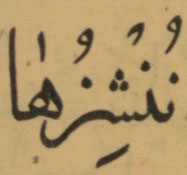 نُنْشِزُهٰا